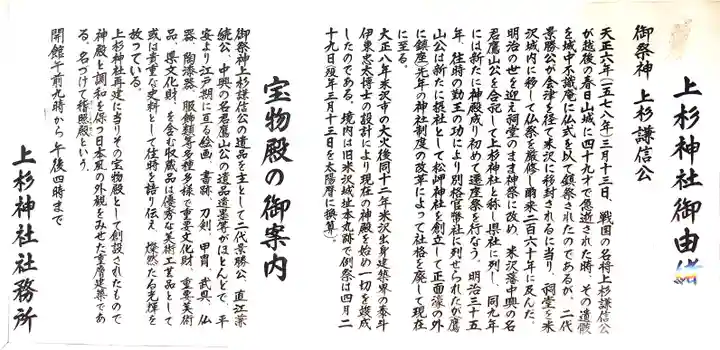 上杉神社御由緒
御祭神 上杉謙信公
天正六年(一五七八年)三月十三日、戦国の名将上杉謙信公
が越後の春日山城に四十九才で急逝された時、その遺骸
を城中不識庵に仏式を以て鎮祭されたのであるが、二代
景勝公が会津を径て米沢に移封されるに当り、祠堂を米
沢城内に移して仏祭を厳修し爾来二百六十年に及んだ。
明治の世を迎え祠堂のまま神祭に改め、米沢藩中興の名
君鷹山公を合祀して上杉神社と称し県社に列し、同九年
には新たに神殿成り初めて遷座祭を行なう。明治三十五
年、往時の勤王の功により別格官幣社に列せられたが鷹
山公は新たに摂社として松岬神社を創立して正面濠の外
に鎮座(先年の神社制度の改革によって社格を廃して現在
に至る。
大正八年米沢市の大火後同十二年米沢出身建築界の泰斗
伊東忠太博士の設計により現在の神殿を始め一切を竣成
したのである。境内は旧米沢城址本丸跡で例祭は四月二
十九日(旧年三月十三日を太陽暦に換算)。
宝物殿の御案内
御祭神上杉謙信公の遺品を主として二代景勝公、直江兼
続公、中興の名君鷹山公の遺品遺墨等がほとんどで、平
安より江戸期に亘る絵画、書跡、刀剣、甲冑、武具、仏
器、陶漆器、服飾類等多種多様で重要文化財、重要美術
品、県文化財、を含む収蔵品は優秀な美術工芸品として
或は貴重な史料として往時を語り伝え、燦然たる光輝を
放っている。
上杉神社再建に当りその宝物殿として創設されたもので
神殿と調和を保つ日本風の外観をみせた重層建築であ
る。名づけて稽照殿という。
開館午前九時から 午後四時まで
上杉神社社務所